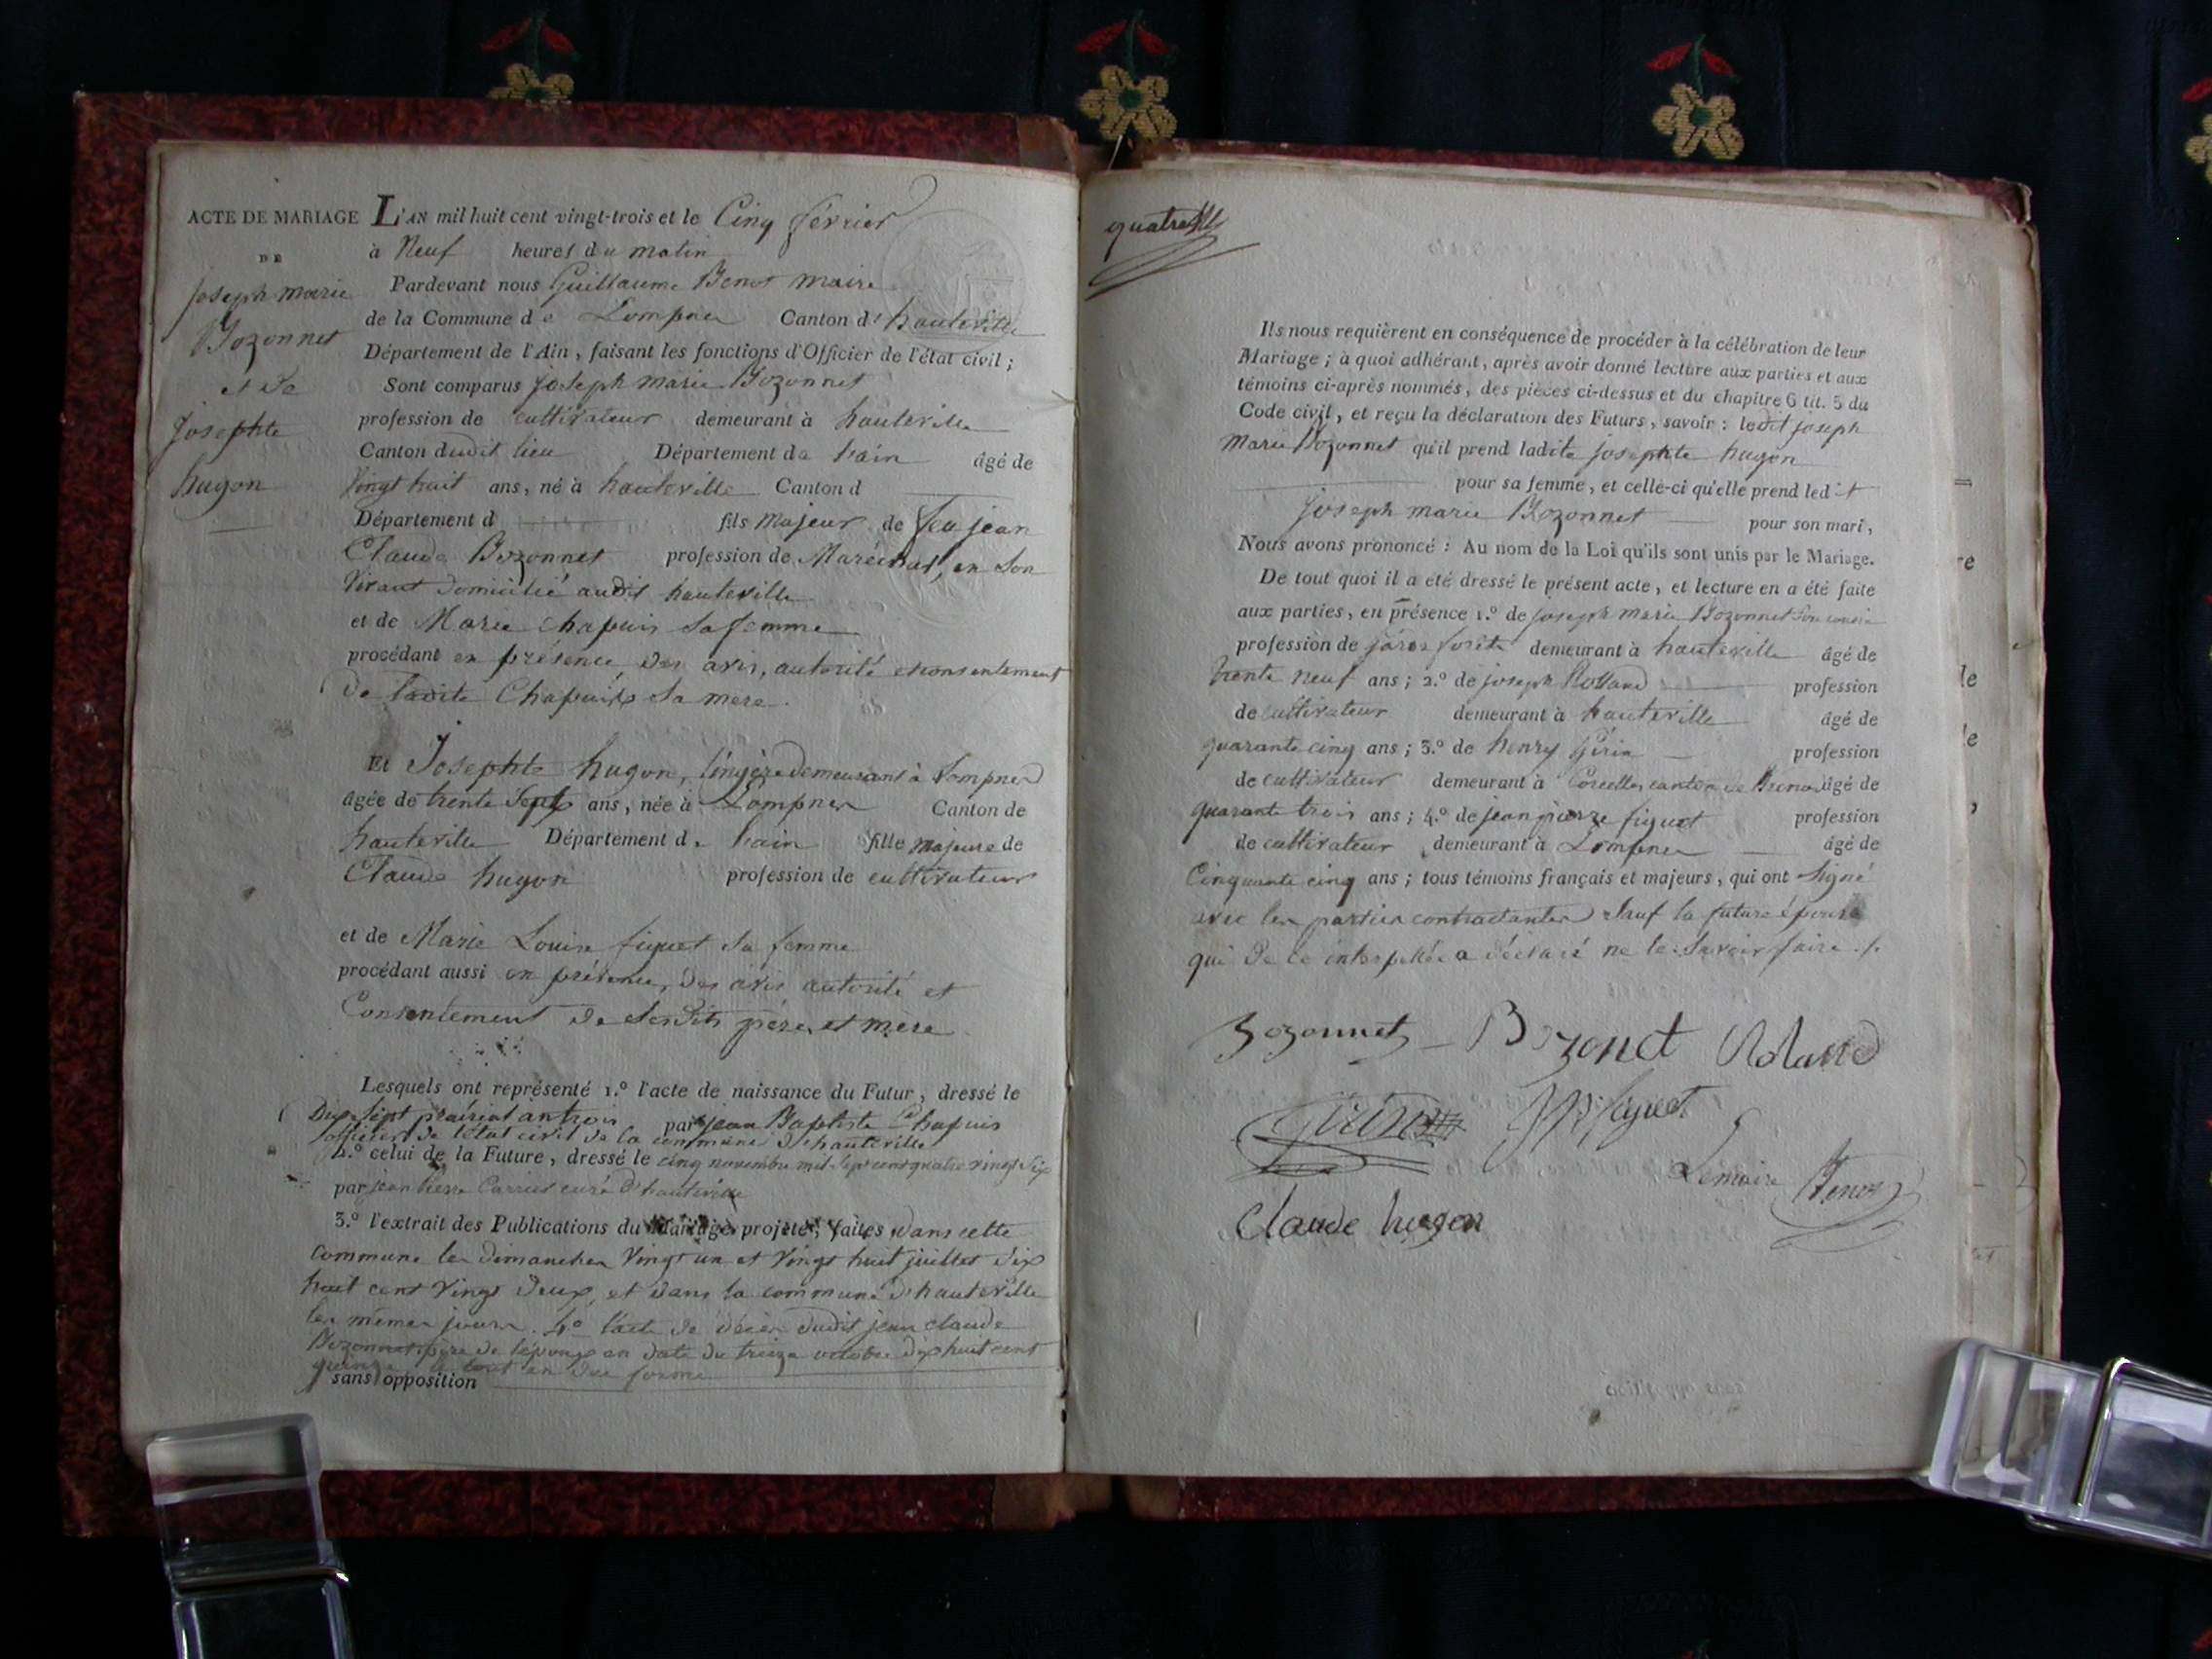 ACTE DE MARIAGE
DE
joseph marie
Bozonnet
et de
josephte
hugon
L'AN mil huit cent vingt-trois et le Cinq février
à Neuf heures du matin
Pardevant nous Guillaume Benot maire
de la Commune de Lompnes Canton d'hauteville
Département de l'Ain, faisant les fonctions d'Officier de l'état civil;
Sont comparus joseph marie Bozonnet
profession de cultivateur demeurant à hauteville
Canton dudit lieu Département de l'ain âgé de
Vingt huit ans, né à hauteville Canton d
Département d fils majeur de feu jean
Claude Bozonnet profession de Maréchal, en son
vivant domicilié audit hauteville
et de Marie chapuis sa femme
procédant en présence, des avis, autorité et consentement
de ladite Chapuis sa mere.
Et Josephte hugon, lingère demeurant à Lompnes
âgée de trente sept ans, née à Lompnes Canton de
hauteville Département de l'ain fille majeure de
Claude hugon profession de cultivateur
et de Marie Louise figuet sa femme
procédant aussi en présence, des avis autorité et
Consentement de sesdits père et mère
Lesquels ont représenté 1.° l'acte de naissance du Futur, dressé le
Dix sept prairial an trois par jean Baptiste Chapuis
officier de l'état civil de la commune d'hauteville
2.° celui de la Future, dressé le cinq novembre mil sept cent quatre vingt six
par jean Pierre Carrier curé d'hauteville
3.° l'extrait des Publications du Mariage projeté, faites dans cette
commune les dimanches vingt un et vingt huit juillet dix
huit cent vingt deux, et dans la commune d'hauteville
les mêmes jours. 4.° l'acte de décès dudit jean claude
Bozonnet père de l'époux en date du treize octobre dix huit cent
quinze le tout en due forme
sans opposition
quatre
Ils nous requièrent en conséquence de procéder à la célébration de leur
Mariage; à quoi adhérant, après avoir donné lecture aux parties et aux
témoins ci-après nommés, des pièces ci-dessus et du chapitre 6 tit. 5 du
Code civil, et reçu la déclaration des Futurs, savoir: ledit joseph
Marie Bozonnet qu'il prend ladite josephte hugon
pour sa femme, et celle-ci qu'elle prend ledit
joseph marie Bozonnet pour son mari,
Nous avons prononcé: Au nom de la Loi qu'ils sont unis par le Mariage.
De tout quoi il a été dressé le présent acte, et lecture en a été faite
aux parties, en présence 1.° de joseph marie Bozonnet son cousin
profession de demeurant à hauteville âgé de
trente neuf ans; 2.° de joseph Rolland profession
de cultivateur demeurant à hauteville âgé de
quarante cinq ans; 3.° de henry Girin profession
de cultivateur demeurant à Corcelles canton de Brenod âgé de
quarante trois ans; 4.° de jean pierre figuet profession
de cultivateur demeurant à Lompnes âgé de
Cinquante cinq ans; tous témoins français et majeurs, qui ont signé
avec les parties contractantes sauf la future épouse
qui de ce interpellée a déclaré ne le savoir faire ./.
Bozonnet Bozonet Roland
Girin JP figuet
Le maire Benot
Claude hugon